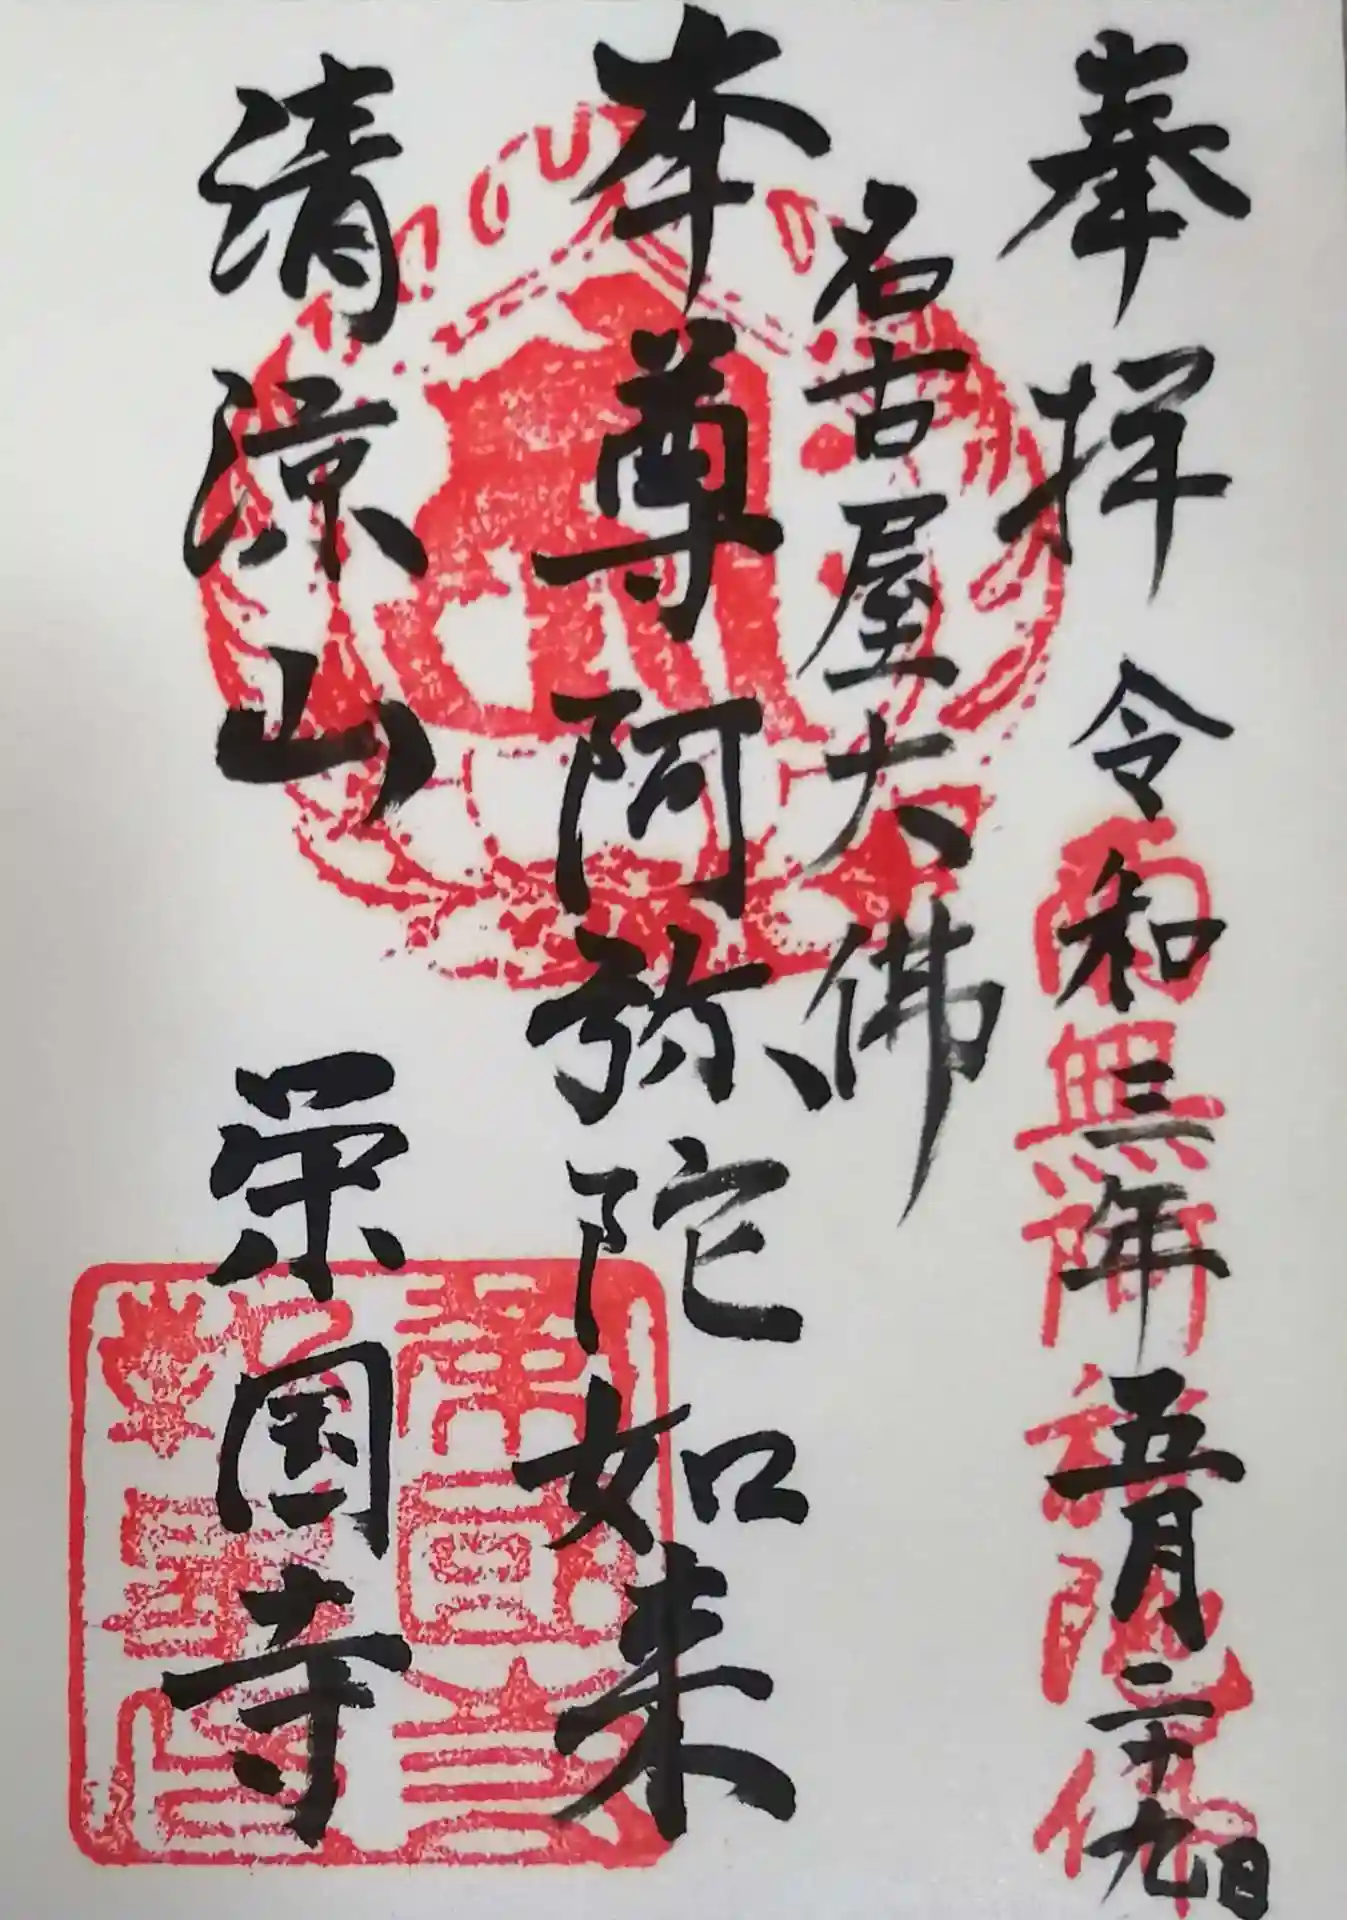 奉拝 令和三年五月二十九日
南無阿弥陀佛
名古屋大佛
本尊 阿弥陀如来
清涼山 栄国寺